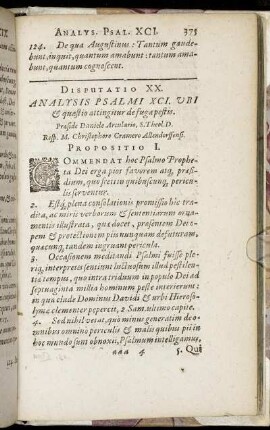 ANALYS. PSAL. XCI. 375
124. De qua Augustinus: Tantum gaude-
bunt, inquit, quantum amabunt: tantum ama-
bunt, quantum cognoscent.
DISPUTATIO XX.
ANALYSIS PSALMI XCI. UBI
& quæstio attingitur de fuga pestis.
Præside Daniele Arculario, S. Theol. D.
Resp. M. Christophoro Cramero Allendorffensi.
PROPOSITIO I.
COMMENDAT hoc Psalmo Prophe-
ta Dei erga pios favorem atq, præsi-
dium, quo sæpius quibuscunq, pericu-
lis serventur.
2. Estq, plena consolationis promissio hic tra-
dita, ac miris verborum & sententiarum orna-
mentis illustrata, quæ docet, præsentem Dei o-
pem & protectionem piis nunquam defuturam,
quæcunq, tandem ingruant pericula.
3. Occasionem meditandi Psalmi fuisse plę-
riq, interpretes sentiunt luctuosissimum illud pestilen-
tiæ tempus, quo intra triduum in populo Dei ad
septuaginta millia hominum peste interierunt:
in qua clade Dominus Davidi & urbi Hieroso-
lymæ clementer pepercit, 2 Sam. ultimo capite.
4. Sed nihil vetat, quo minus generatim de o-
mnibus omnino periculis & malis quibus pii in
hoc mundo sunt obnoxii, Psalmum intelligamus,
aaa 4 5. Qui